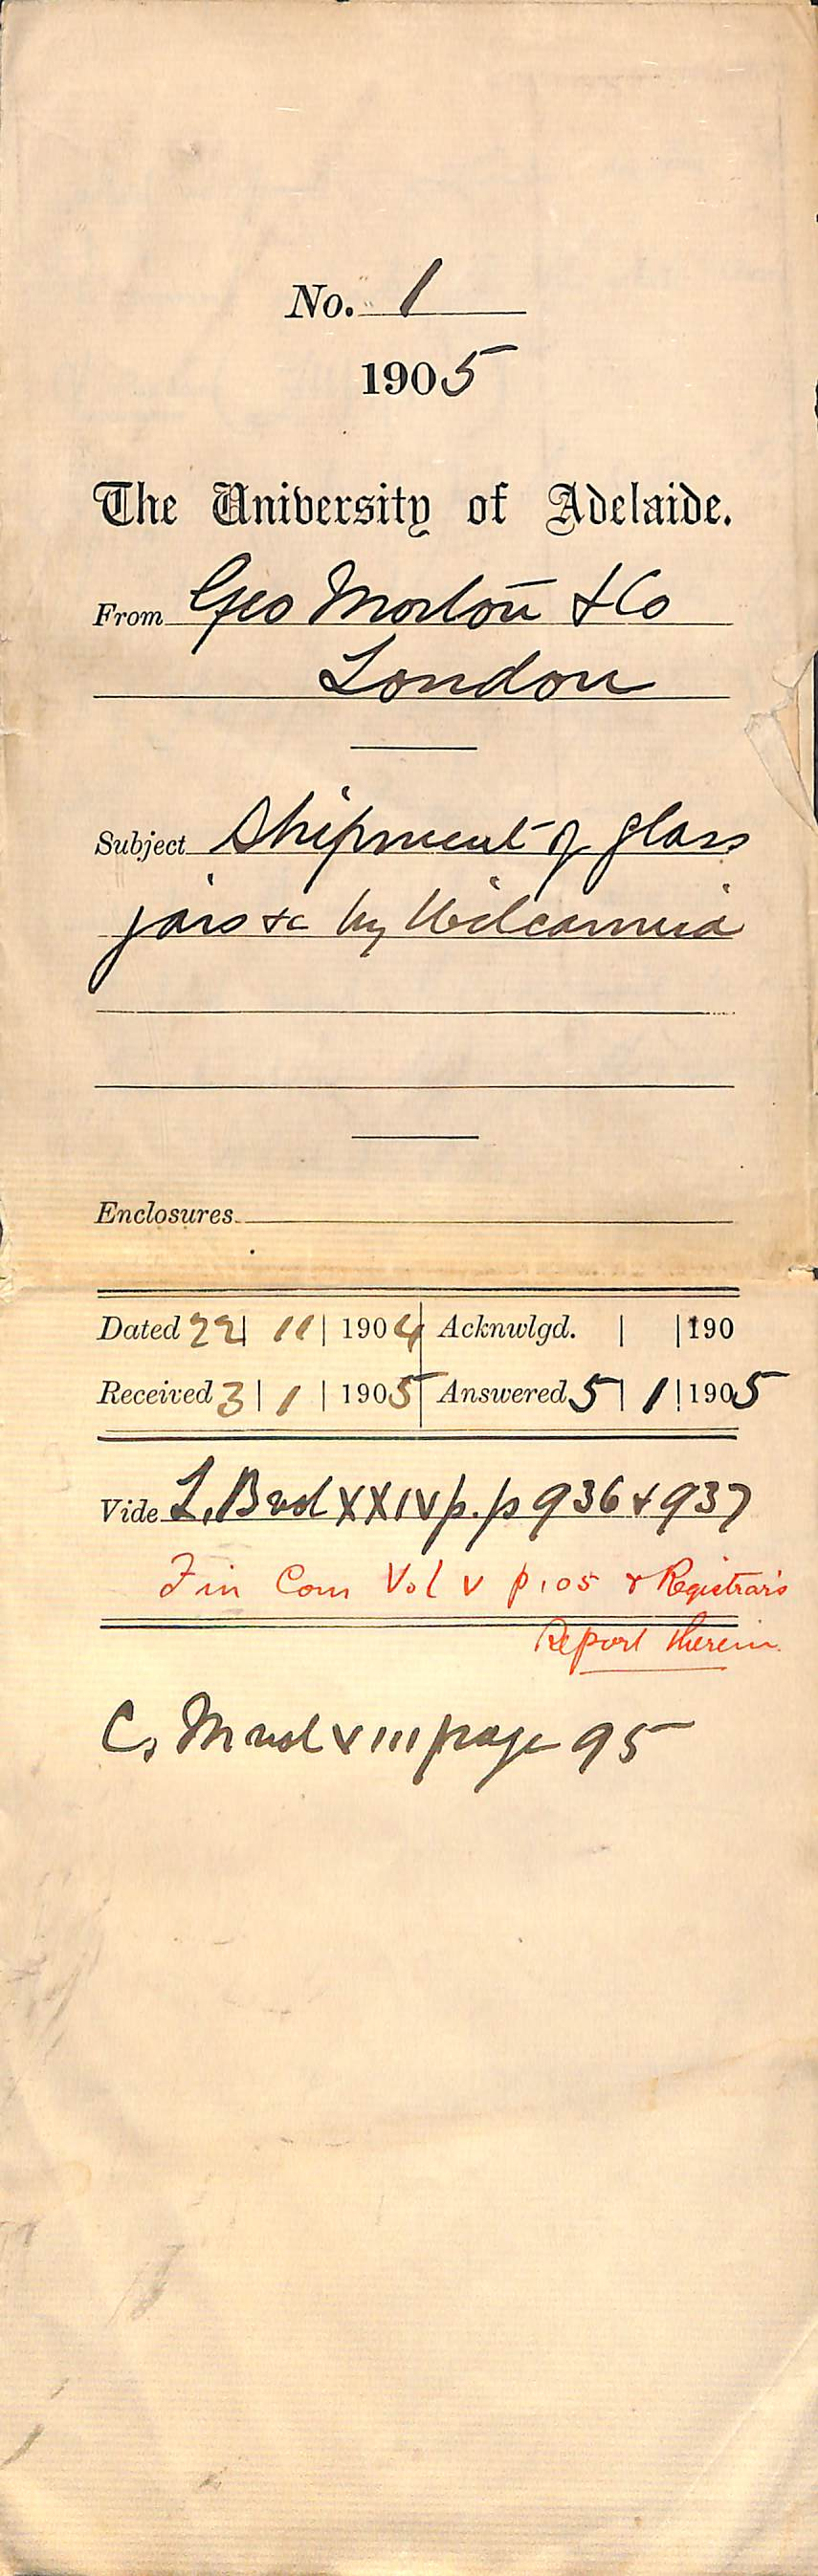 No. 1
1905
The University of Adelaide.
From Geo Morton & Co
London
Subject Shipment of glass
jars &c by Wilcannia
Enclosures
Dated 22| 11| 1904 Acknwlgd. | |190
Received 3| 1 | 1905 Answered 5| 1 |1905
Vide L.B vol XXIV p.p 936 & 937
Fin Com Vol V p 105 & Registrar's
Report therein
C. M vol XIII page 95